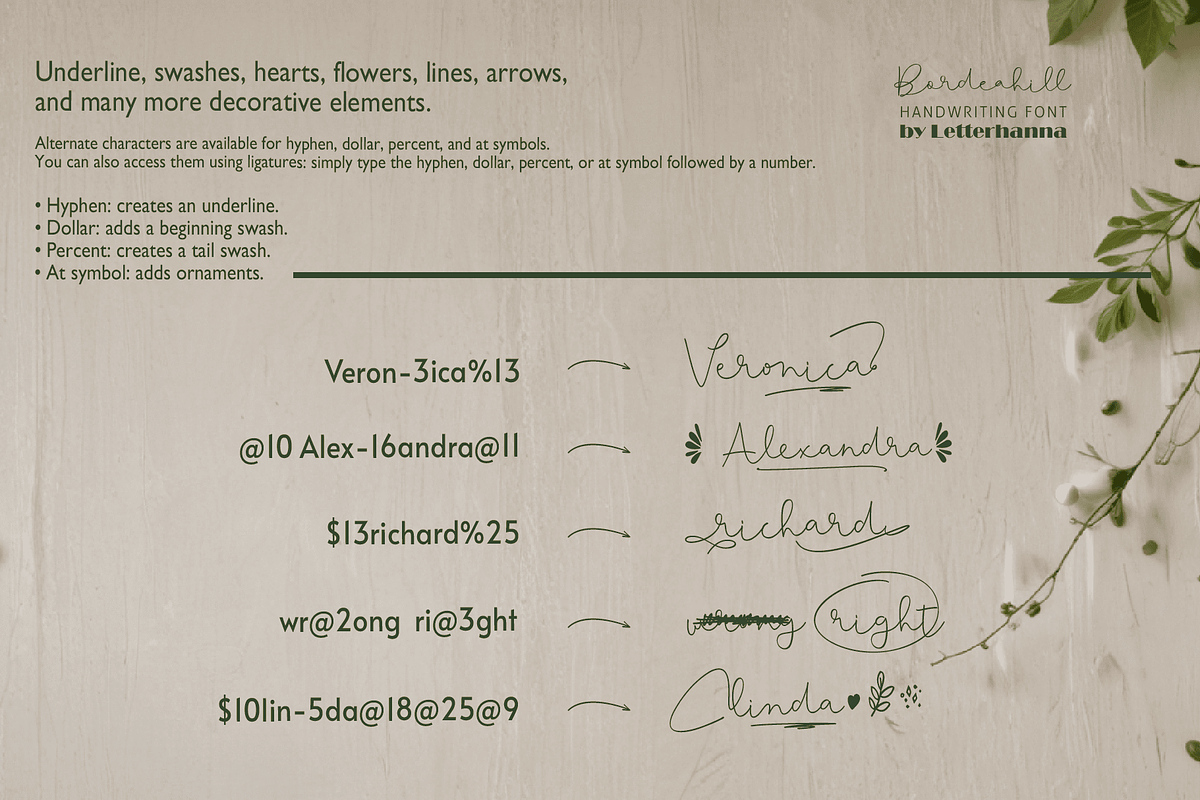 Underline, swashes, hearts, flowers, lines, arrows,
and many more decorative elements.
Bordeahill
HANDWRITING FONT
by Letterhanna
Alternate characters are available for hyphen, dollar, percent, and at symbols.
You can also access them using ligatures: simply type the hyphen, dollar, percent, or at symbol followed by a number.
• Hyphen: creates an underline.
• Dollar: adds a beginning swash.
• Percent: creates a tail swash.
• At symbol: adds ornaments.
Veron-3ica%13 Veronica
@10 Alex-16andra@11 Alexandra
$13richard%25 richard
wr@2ong ri@3ght wrong right
$10lin-5da@18@25@9 Clinda